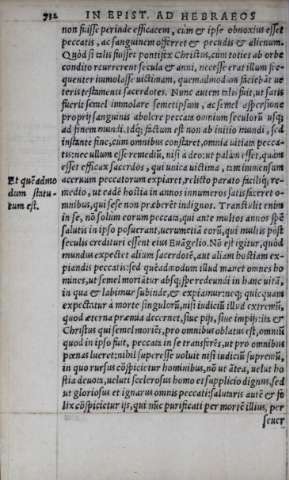 732 IN EPIST. AD HEBRAEOS
non fuisse perinde efficacem, cum & ipse obnoxius esset
peccatis, ac sanguinem offerret & pecudis & alienum.
Quòd si talis fuisset pontifex Christus, cum toties ab orbe
condito recurrerent secula & anni, necesse erat illum fre-
quenter immolasse uictimam, quemadmodum faciebãt ue
teris testamenti sacerdotes. Nunc autem talis fuit, ut satis
fuerit semel immolare semetipsum, ac semel aspersione
proprij sanguinis abolere peccata omnium seculorũ usq;
ad finem mundi. Idq; factum est non ab initio mundi, sed
instante fine, cum omnibus constaret, omnia uitiari pecca-
tis: nec ullum esse remediũ, nisi à deo: ut palàm esset, quàm
esset efficax sacerdos, qui unica uictima, tam immensum
aceruum peccatorum expiaret, relicto parato faciliq; re-
medio, ut eadẽ hostia in annos innumeros satisfaceret o-
mnibus, qui sese non præberẽt indignos. Transtulit enim
in se, nõ solum eorum peccata, qui ante multos annos spẽ
salutis in ipso posuerant, uerumetiã eorũ, qui multis pòst
seculis credituri essent eius Euãgelio. Nõ est igitur, quòd
mundus expectet alium sacerdotẽ, aut aliam hostiam ex-
piandis peccatis: sed quẽadmodum illud manet omnes ho
mines, ut semel moriãtur absq; spe redeundi in hanc uitã,
in qua & labimur subinde, & expiamur: neq; quicquam
expectatur à morte singulorũ, nisi iudiciũ illud extremũ,
quod æterna præmia decernet, siue pijs, siue impijs: ita &
Christus qui semel moriẽs, pro omnibus oblatus est, omniũ
quod in ipso fuit, peccata in se transferẽs, ut pro omnibus
pœnas lueret: nihil superesse uoluit nisi iudiciũ supremũ,
in quo rursus cõspicietur hominibus, nõ ut ãtea, uelut ho
stia deuota, ueluti scelerosus homo et supplicio dignus, sed
ut gloriosus et ignarus omnis peccati: salutaris autẽ & fe
lix cõspicietur ijs, qui nũc purificati per mortẽ illius, per
seuer
Et quẽadmo
dum statu-
tum est.